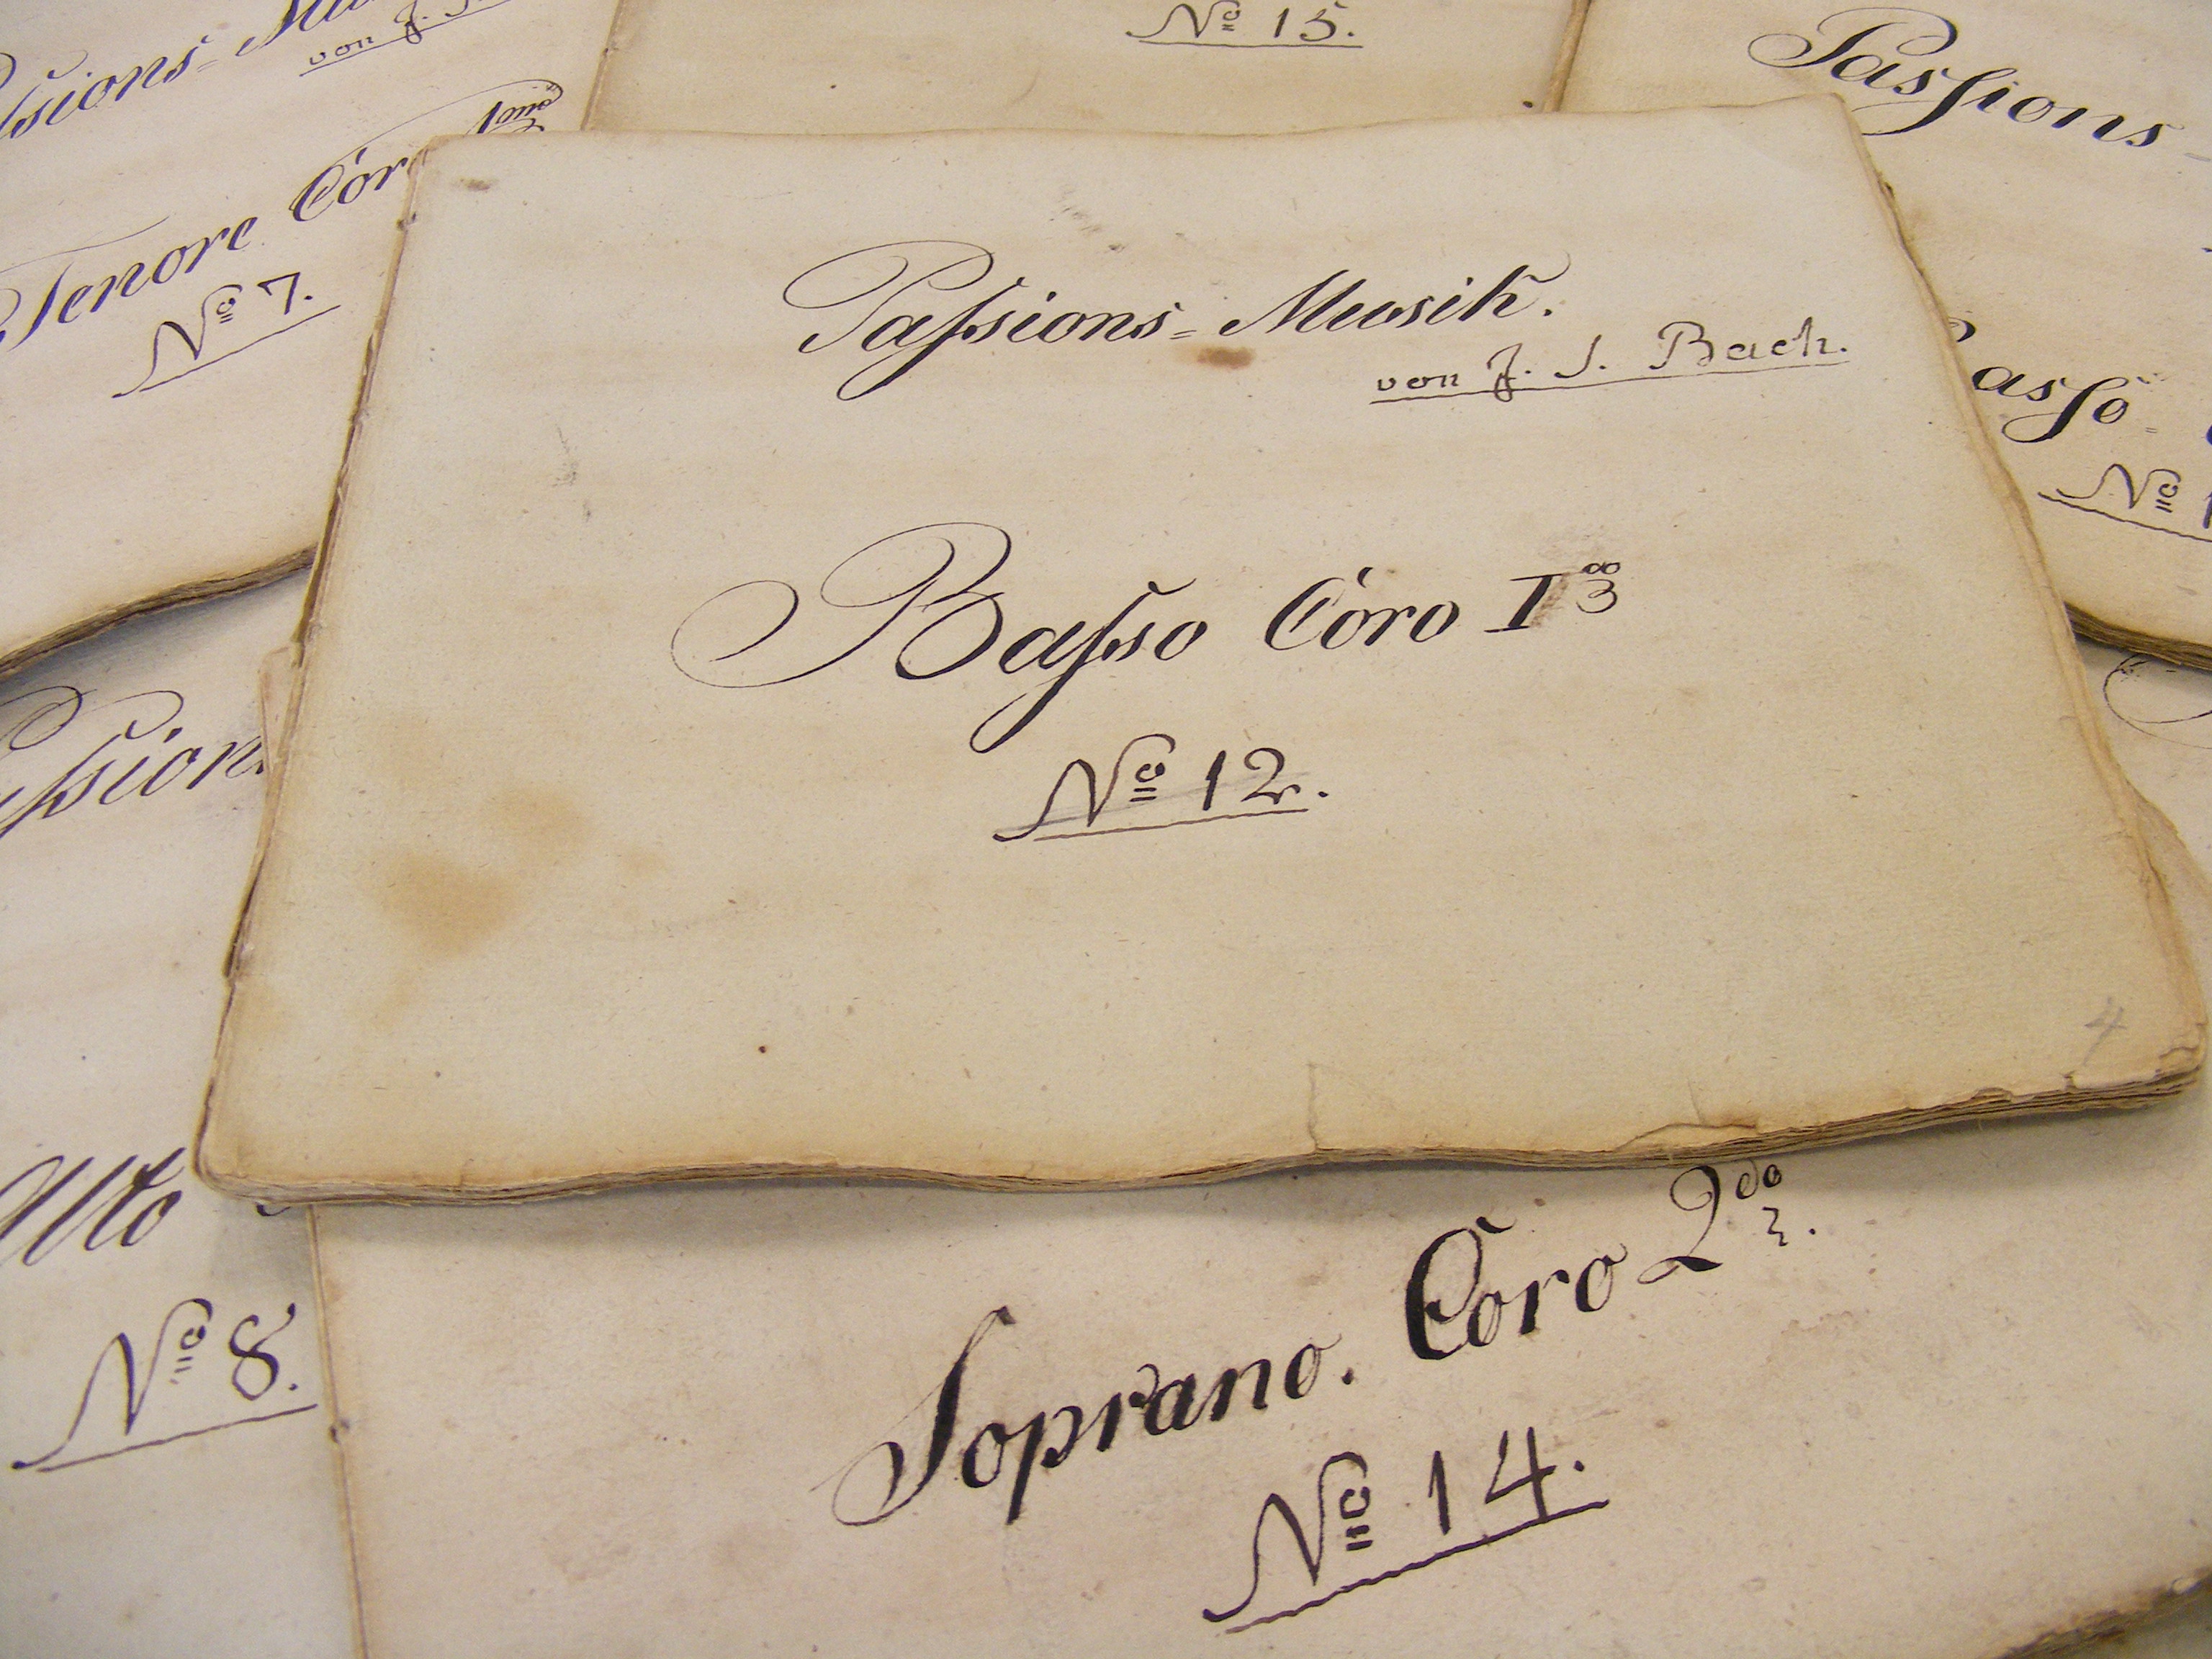 von J. S.
Tenore Coro 1mo
No 7.
No 15.
Passions-
Basso
No 1
Paſsions-Musik.
von J. S. Bach.
Baſso Coro I
No 12.
Alto
No 8.
Soprano. Coro 2do
No 14.
4